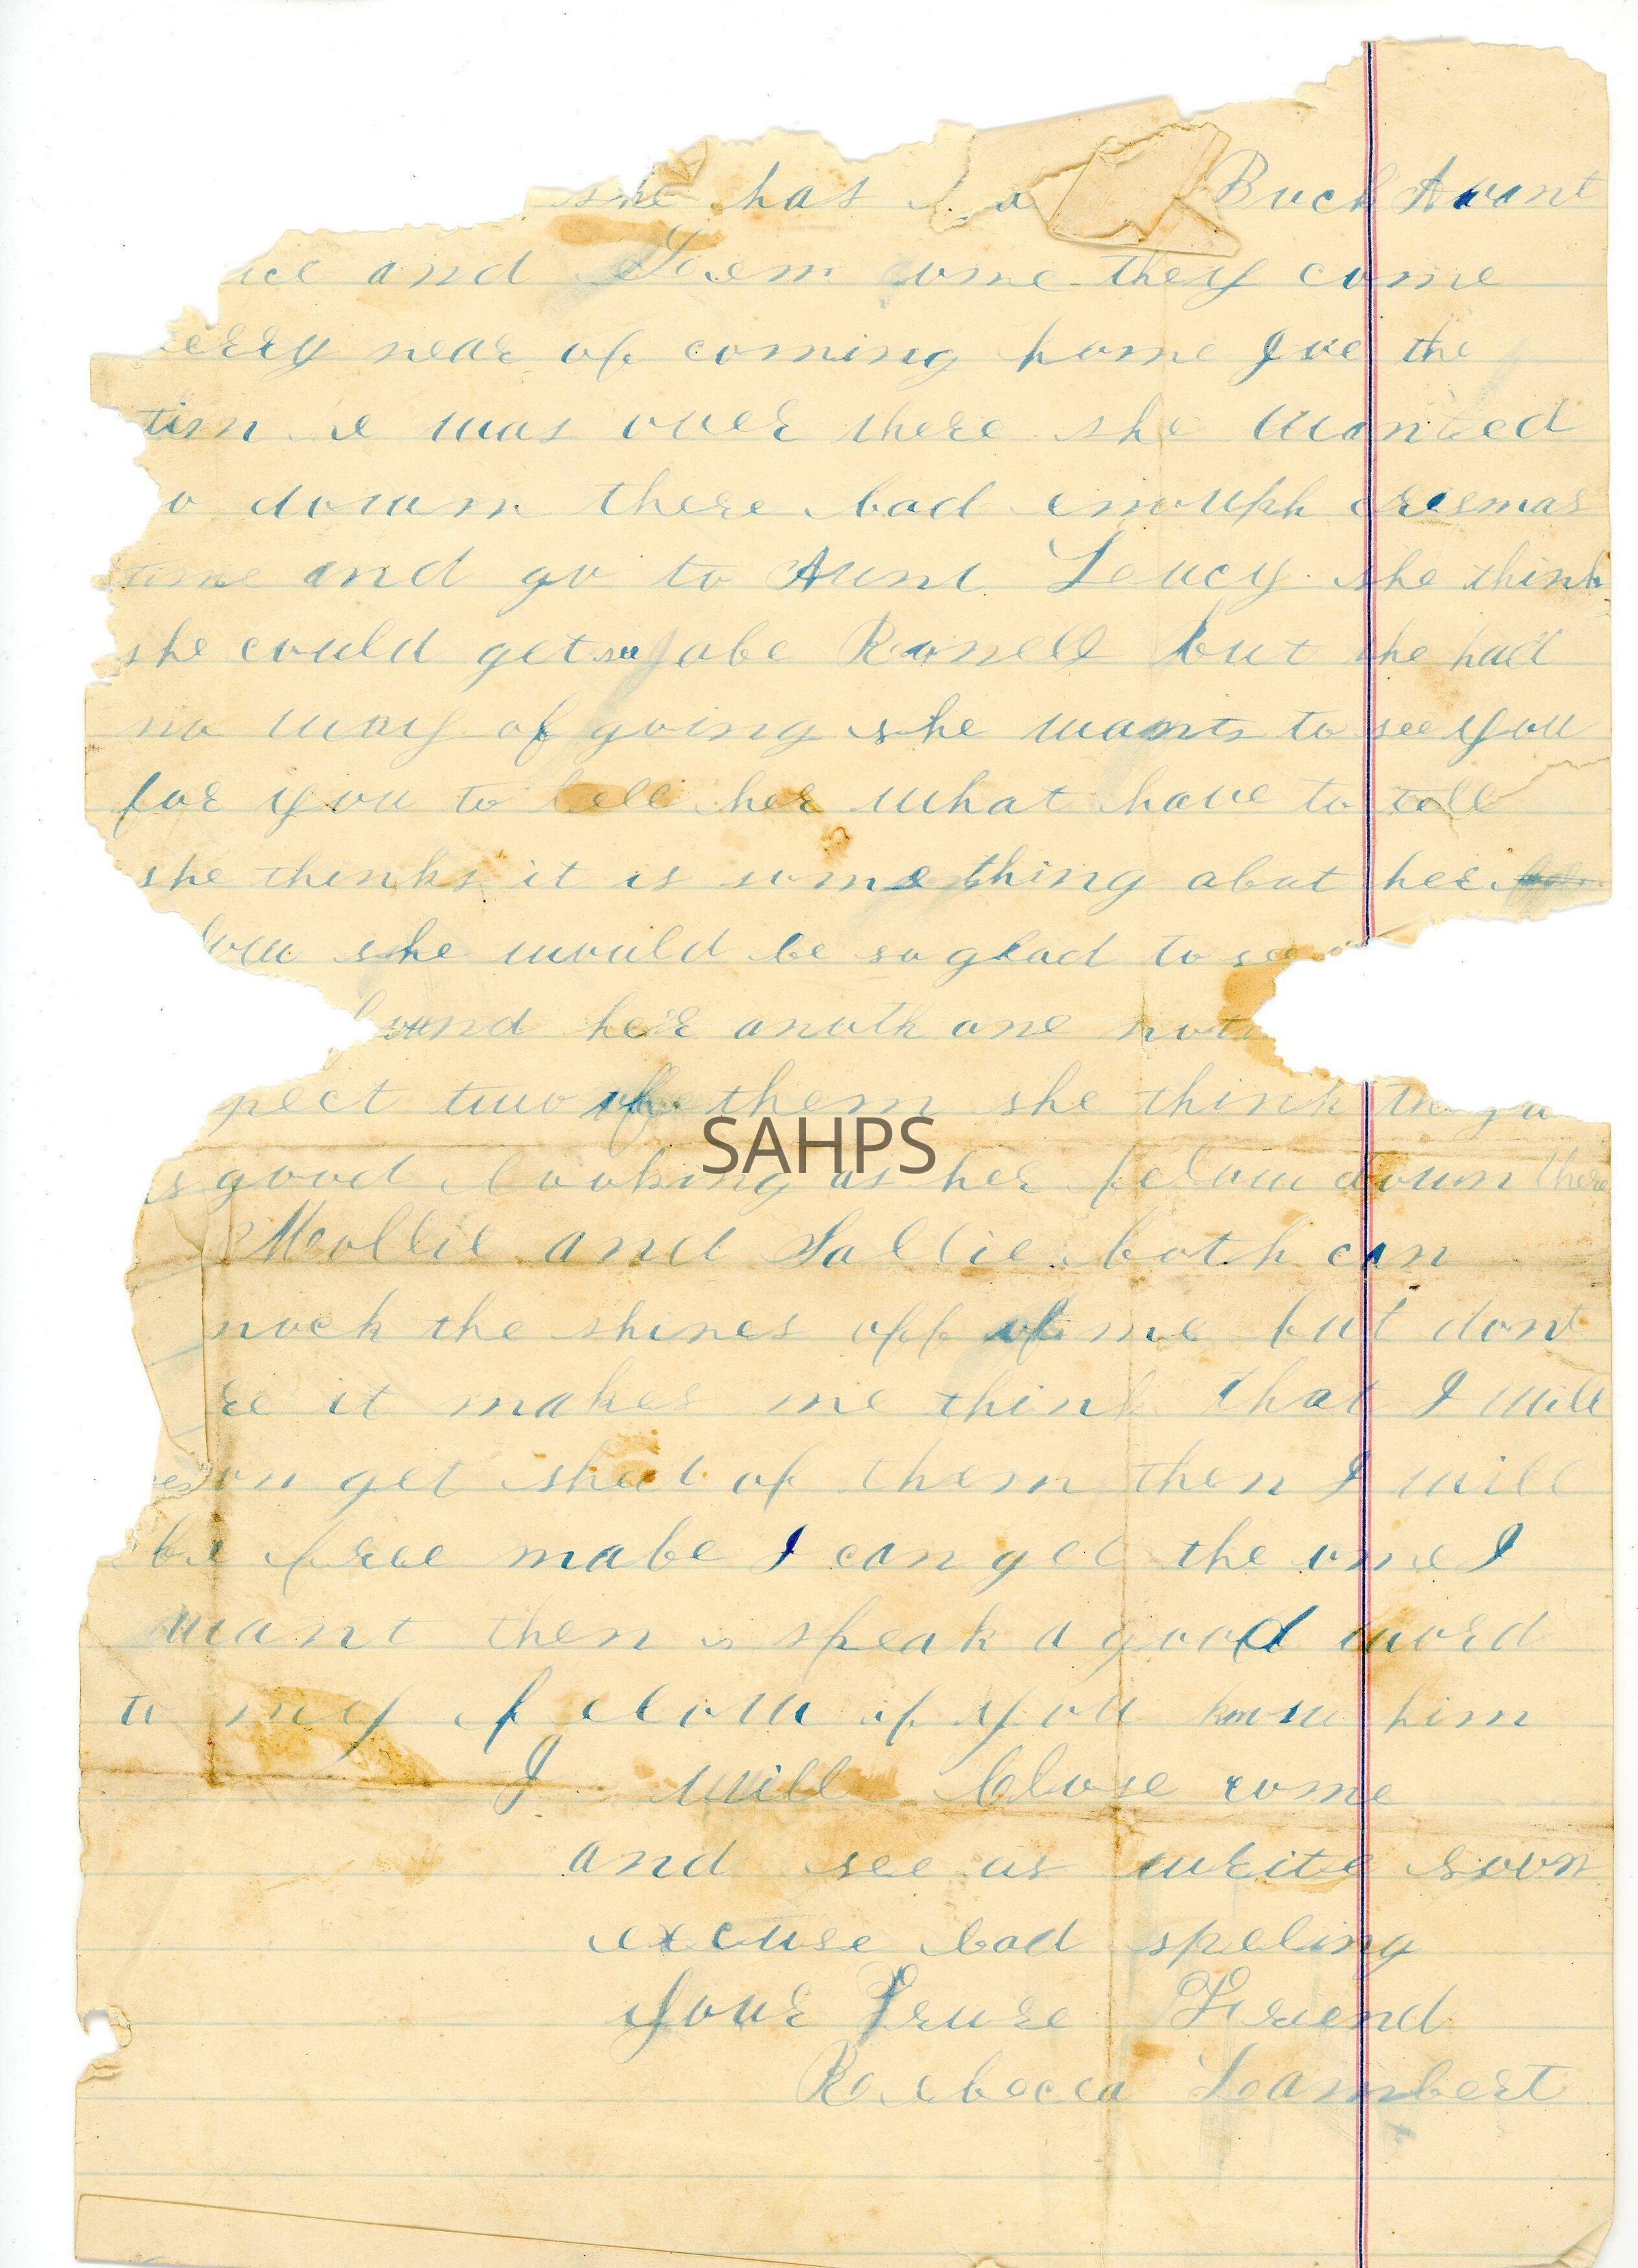 she has Buck Avant
and come they come
near of coming home Joe the
tim was over there she wanted
down there bad enouph cresmas
time and go to Aunt Leucy she think
she could get see Jabe but she had
no way of going she wants to see you
for you to tell her what have to tell
she thinks it is some thing abat her
she would be so glad to see
her anoth one not
pect two of them she think
as good looking as her felow down there
SAHPS
Mollie and Sallie both can
nock the shines off of me but dont
it makes me think that I will
get shet of them then I will
be free mabe I can get the one I
want then speak a good word
to my felow if you know him
I will close come
and see us write soon
excuse bad speling
your Friend
Rebecca Lambert